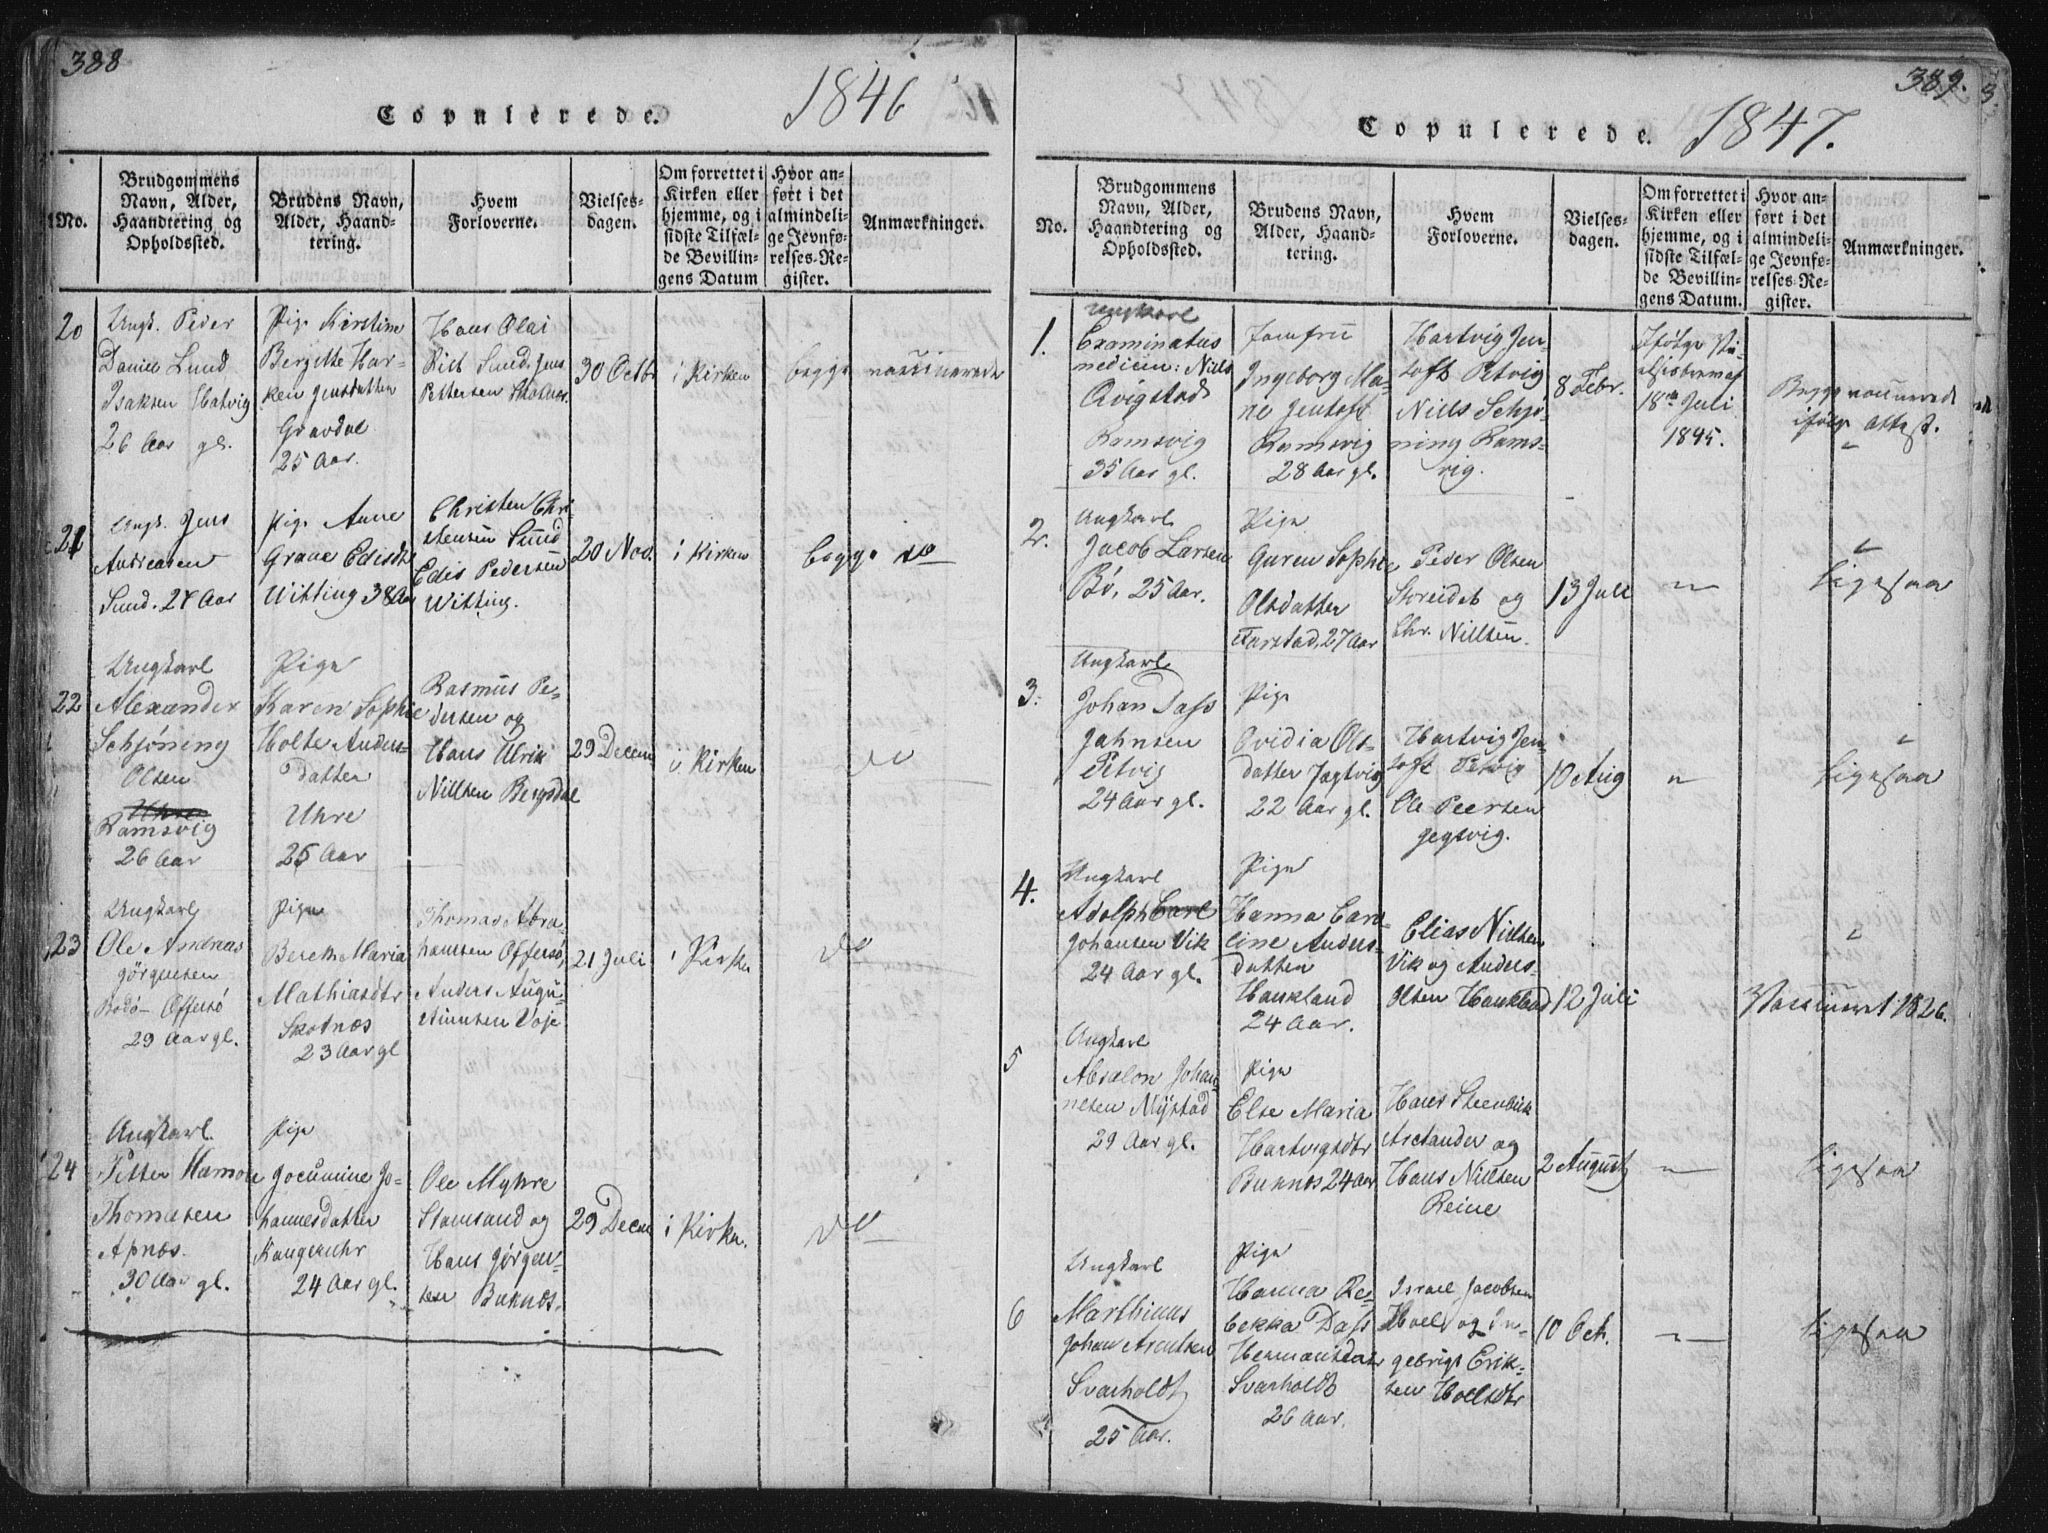 388
Copulerede.
1846
No.
Brudgommens
Navn, Alder,
Haandtering og
Opholdssted.
Brudens Navn,
Alder, Haand-
tering.
Hvem
Forloverne.
Vielses-
dagen.
Om forrettet i
Kirken eller
hjemme, og i
sidste Tilfæl-
de Bevillin-
gens Datum
Hvor an-
ført i det
almindeli-
ge Jevnfø-
relses-Re-
gister.
Anmærkninger.
20
Ungk. Peder
Daniel Lund
Isaksen Hatvig
26 Aar gl.
Pige Kirstine
Bergitte Har-
ken Jensdatter
Gravdal
25 Aar.
Hans Olai
Rist Sund. Jens
Pettersen
30 Octbr
i Kirken
begge vaccinerede
21
Ungk. Jens
Andreasen
Sund. 27 Aar
Pige Anne
Grave Edisdtr
Witting 38 Aar
Christen Chri-
stensen Sund
Edis Pedersen
Witting.
20 Nov.
i Kirken
begge do
22
Ungkarl
Alexander
Schjöning
Olsen
Uhre
Ramsvig
26 Aar
Pige
Karen Sophie
Holte Anders-
datter
Uhre
25 Aar
Rasmus Pe-
dersen og
Hans Ulrik
Nillsen Bergsdal
29 Decem
i Kirken
do
23
Ungkarl
Ole Andreas
Jörgensen
Bodö- Offersö
29 Aar gl.
Pige
Berek Maria
Mathiasdtr
Skotnæs
23 Aar gl
Thomas Abra-
hamsen Offersö,
Anders Augu-
stinusen Voje
21 Juli
i Kirken
do
24
Ungkarl.
Petter Hamon
Thomasen
Apnæs.
30 Aar gl.
Pige
Jocumine Jo-
hannesdatter
Kangeruhr
24 Aar gl.
Ole Myhre
Stamsund og
Hans Jörgen-
sen Buknæs.
29 Decem
i Kirken.
do
389.
Copulerede.
1847.
No.
Brudgommens
Navn, Alder,
Haandtering og
Opholdssted.
Brudens Navn,
Alder, Haand-
tering.
Hvem
Forloverne.
Vielses-
dagen.
Om forrettet i
Kirken eller
hjemme, og i
sidste Tilfæl-
de Bevillin-
gens Datum.
Hvor an-
ført i det
almindeli-
ge Jevnfø-
relses-Re-
gister.
Anmærkninger.
1.
Ungkarl
Examinatus
medicin: Niels
Qvigstad
Ramsvig
35 Aar gl.
Jomfru
Ingeborg Ma-
rie Jentoft
Ramsvig
28 Aar gl.
Hartvig Jen-
toft Petvig
Niels Schjö-
ning Rams-
vig.
8 Febr.
Ifölge
18de Juli
1845.
Begge vaccinerede
ifölge Attest.
2.
Ungkarl
Jacob Larsen
Bö. 25 Aar.
Pige
Guren Sophie
Olsdatter
Farstad, 27 Aar
Peder Olsen
Storeidet og
Chr. Nillsen.
13 Juli
"
Ligesaa
3.
Ungkarl
Johan Dass
Jahnsen
Petvig
24 Aar gl.
Pige
Ovidia Ols-
datter Jægtvig
22 Aar gl.
Hartvig Jen-
toft Petvig
Ole Peersen
Jegtvig.
10 Aug
"
Ligesaa
4.
Ungkarl
Adolph Carl
Johansen Vik
24 Aar gl.
Pige
Hanna Caro-
line Anders-
datter
Haukland
24 Aar.
Elias Nielsen
Vik og Anders
Olsen Haukland
12 Juli
Vaccineret 1826.
5
Ungkarl
Absalon Johan-
nesen Mýstad
29 Aar gl.
Pige
Else Maria
Hartvigsdtr
Buknæs 24 Aar
Hans Steenbuk
Arctander og
Hans Nillsen
Reine
2 August
"
Ligesaa
6
Ungkarl
Marthinus
Johan Arentsen
Svarholdt
25 Aar.
Pige
Hanna Re-
bekka Dass
Hermansdatr
Svarholdt
26 Aar.
Israel Jacobsen
Hoel og In-
gebrigt Erik-
sen
10 Oct.
"
Ligesaa